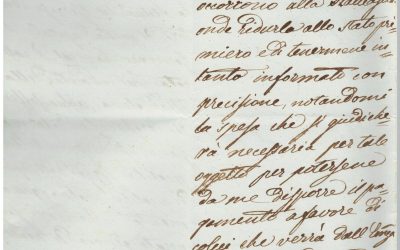 occorrono alla
onde ridurla allo stato pri-
miero e di tenermene in-
tanto informato con
precisione, notandomi
la spesa che si giudiche-
rà necessaria per tale
oggetto per potersene
da me disporre il pa-
gamento a favore di
colei che verrà dall'